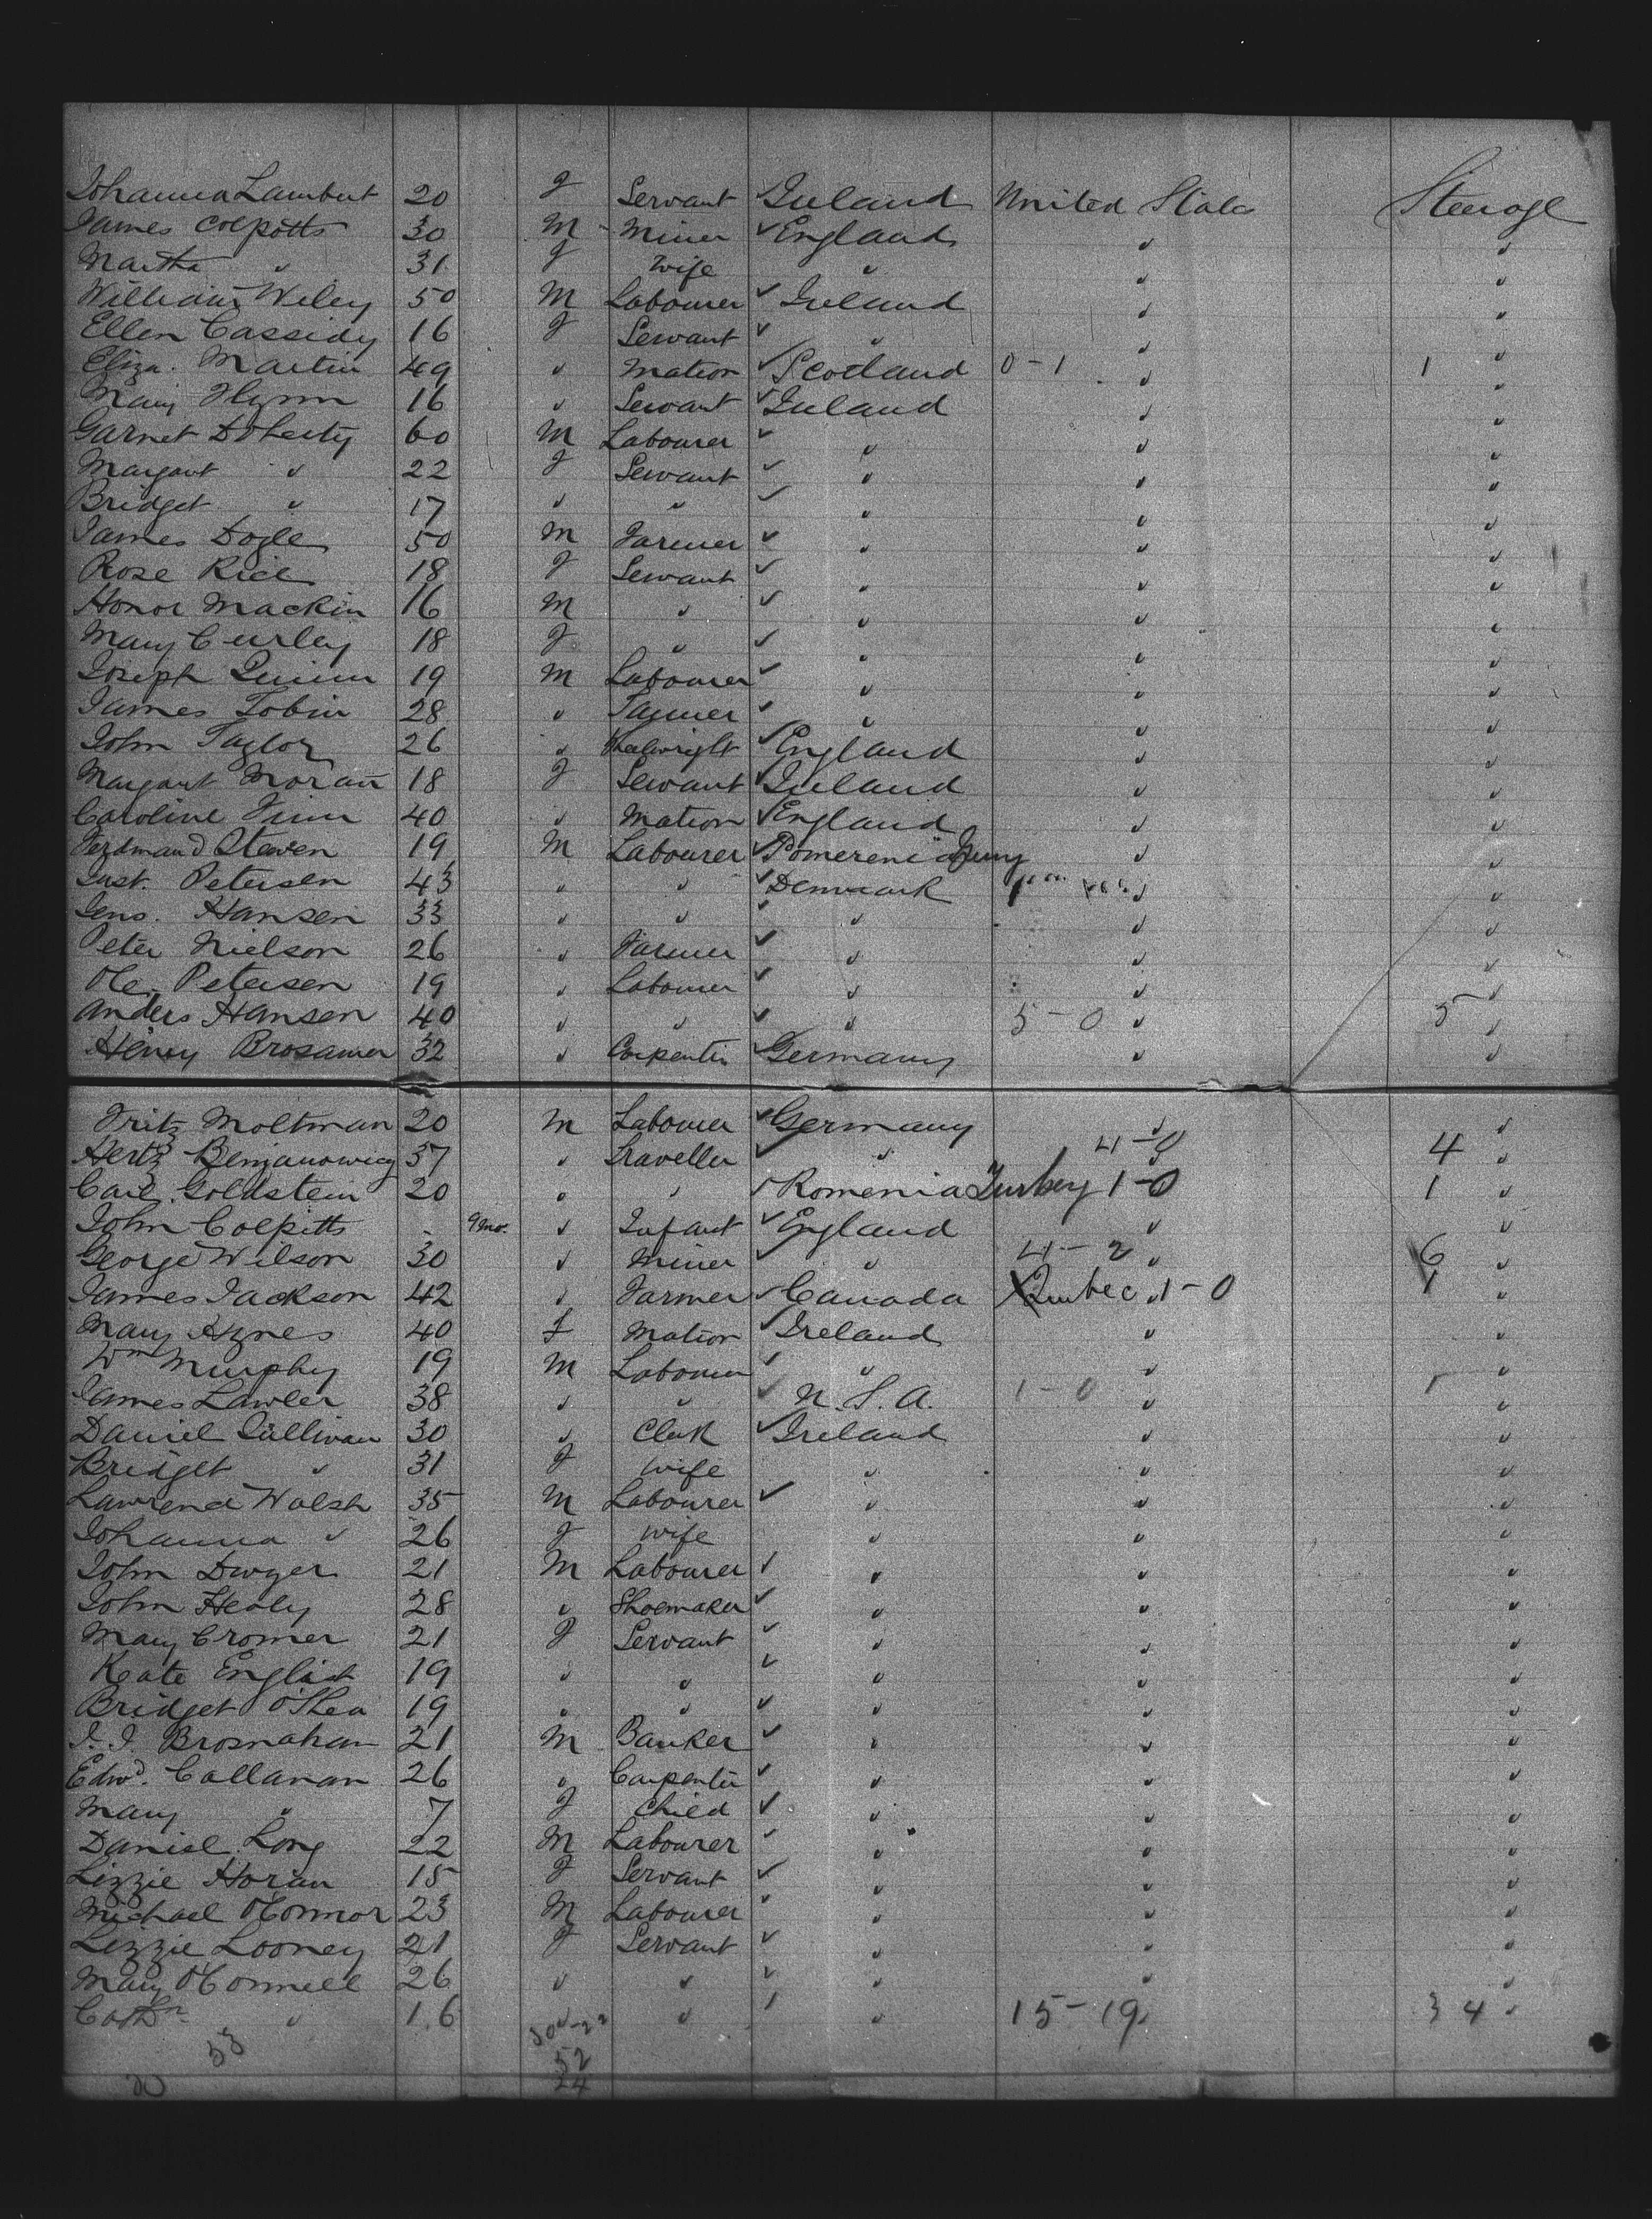 Johanna Lambert 20 F Servant ✓ Ireland United States Steerage
James Colpitts 30 M Miner ✓ England " "
Martha " 31 F Wife " " "
William Wiley 50 M Labourer ✓ Ireland " "
Ellen Cassidy 16 F Servant ✓ " " "
Eliza. Martin 49 " Matron ✓ Scotland 0-1 " 1 "
Mary Flynn 16 " Servant ✓ Ireland " "
Garnet Doherty 60 M Labourer ✓ " " "
Margaret " 22 F Servant ✓ " " "
Bridget " 17 " " ✓ " " "
James Dogle 50 M Farmer ✓ " " "
Rose Rice 18 F Servant ✓ " " "
Honor Mackin 16 M " ✓ " " "
Mary Curley 18 F " ✓ " " "
Joseph Quinn 19 M Labourer ✓ " " "
James Tobin 28 " ✓ " " "
John Taylor 26 " ✓ England " "
Margaret Moran 18 F Servant ✓ Ireland " "
Caroline 40 " Matron ✓ England " "
Ferdinand 19 M Labourer ✓ " "
Petersen 43 " " ✓ Denmark " "
Jens. Hansen 33 " " ✓ " " "
Peter Nielson 26 " Farmer ✓ " " "
Ole. Petersen 19 " Labourer ✓ " " "
Anders Hansen 40 " " ✓ " 5-0 " 5 "
Henry Brosamer 32 " Carpenter ✓ Germany " "
Fritz Moltman 20 M Labourer ✓ Germany " "
Hertz 37 " Traveller ✓ " 4-0 " 4 "
Carl Goldstein 20 " " ✓ Romenia Turkey 1-0 1 "
John Colpitts 9 mo. " Infant ✓ England " "
George Wilson 30 " Miner ✓ " 4-2 " 6 "
James Jackson 42 " Farmer ✓ Canada Quebec 1-0 1 "
Mary Agnes 40 F Matron ✓ Ireland " "
Wm Murphy 19 M Labourer ✓ " " "
James Lawler 38 " " ✓ U.S.A. 1-0 " 1 "
Daniel Sullivan 30 " Clerk ✓ Ireland " "
Bridget " 31 F Wife " " "
Lawrence Walsh 35 M Labourer ✓ " " "
Johanna " 26 F Wife " " "
John Dwyer 21 M Labourer ✓ " " "
John Healy 28 " Shoemaker ✓ " " "
Mary Cromer 21 F Servant ✓ " " "
Kate English 19 " " ✓ " " "
Bridget O'Shea 19 " " ✓ " " "
J. J. Brosnahan 21 M Banker ✓ " " "
Edwd. Callanan 26 " Carpenter ✓ " " "
Mary " 7 F Child ✓ " " "
Daniel Long 22 M Labourer ✓ " " "
Lizzie Horan 15 F Servant ✓ " " "
Michael O'Connor 23 M Labourer ✓ " " "
Lizzie Looney 21 F Servant ✓ " " "
Mary O'Connell 26 " " ✓ " " "
Cathn " 16 " " ✓ " 15-19 " 34 "
53
52
24